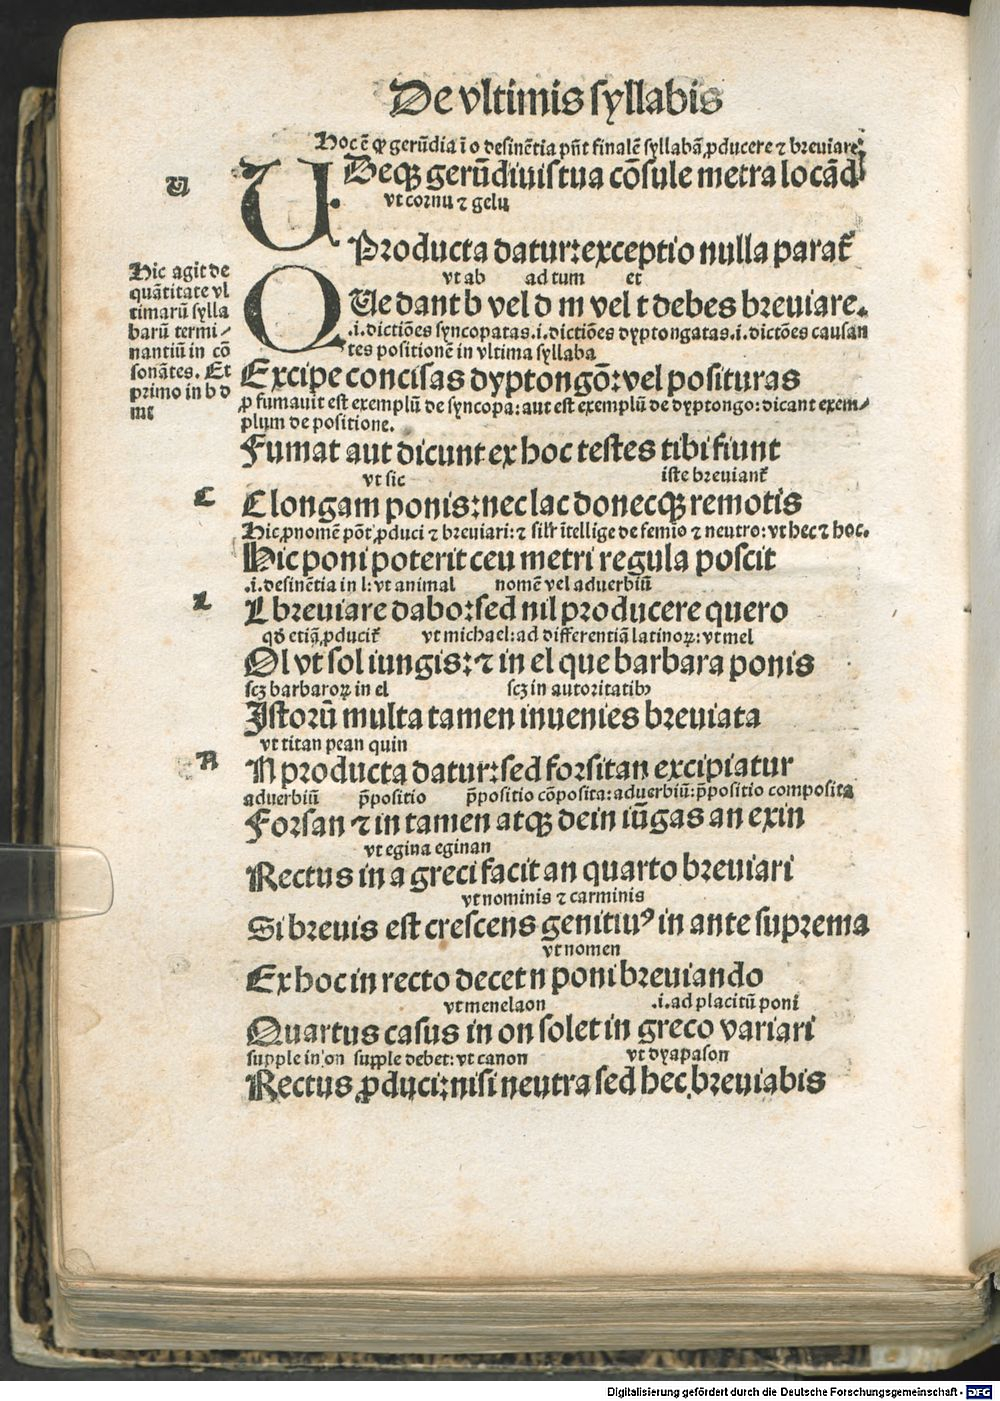 De vltimis syllabis
Hoc ē ꝙ gerūdia ī o desinētia pn̄t finalē syllabā ꝓducere ⁊ breuiare
Deqꝫ gerūdiuis tua cōsule metra locād
U
vt cornu ⁊ gelu
U Producta datur: exceptio nulla parat᷑
vt ab ad tum et
QUe dant b vel d m vel t debes breuiare.
.i. dictiōes syncopatas .i. dictiōes dyptongatas .i. dictōes causan
tes positionē in vltima syllaba
Hic agit de
quātitate vl
timarū sylla
barū termi⸗
nantiū in cō
sonātes. Et
primo in b d
mt
Excipe concisas dyptongō: vel posituras
ꝓ fumauit est exemplū de syncopa: aut est exemplū de dyptongo: dicant exem⸗
plum de positione.
Fumat aut dicunt ex hoc testes tibi fiunt
vt sic iste breuiant᷑
C
C longam ponis: nec lac donecqꝫ remotis
Hic ꝓnomē pōt ꝓduci ⁊ breuiari: ⁊ silr̄ ītellige de femīo ⁊ neutro: vt hec ⁊ hoc.
Hic poni poterit ceu metri regula poscit
.i. desinētia in l: vt animal nomē vel aduerbiū
L
L breuiare dabo: sed nil producere quero
qd̄ etiā ꝓducit᷑ vt michael: ad differentiā latinoꝝ: vt mel
Ol vt sol iungis: ⁊ in el que barbara ponis
scꝫ barbaroꝝ in el scꝫ in autoritatibꝰ
Istorū multa tamen inuenies breuiata
vt titan pean quin
N
N producta datur: sed forsitan excipiatur
aduerbiū p̄positio p̄positio cōposita: aduerbiū: p̄positio composita
Forsan ⁊ in tamen atqꝫ dein iūgas an exin
vt egina eginan
Rectus in a greci facit an quarto breuiari
vt nominis ⁊ carminis
Si breuis est crescens genitiuꝰ in ante suprema
vt nomen
Ex hoc in recto decet n poni breuiando
vt menelaon .i. ad placitū poni
Quartus casus in on solet in greco variari
supple in on supple debet: vt canon vt dyapason
Rectus ꝓduci: nisi neutra sed hec breuiabis
Digitalisierung gefördert durch die Deutsche Forschungsgemeinschaft - DFG